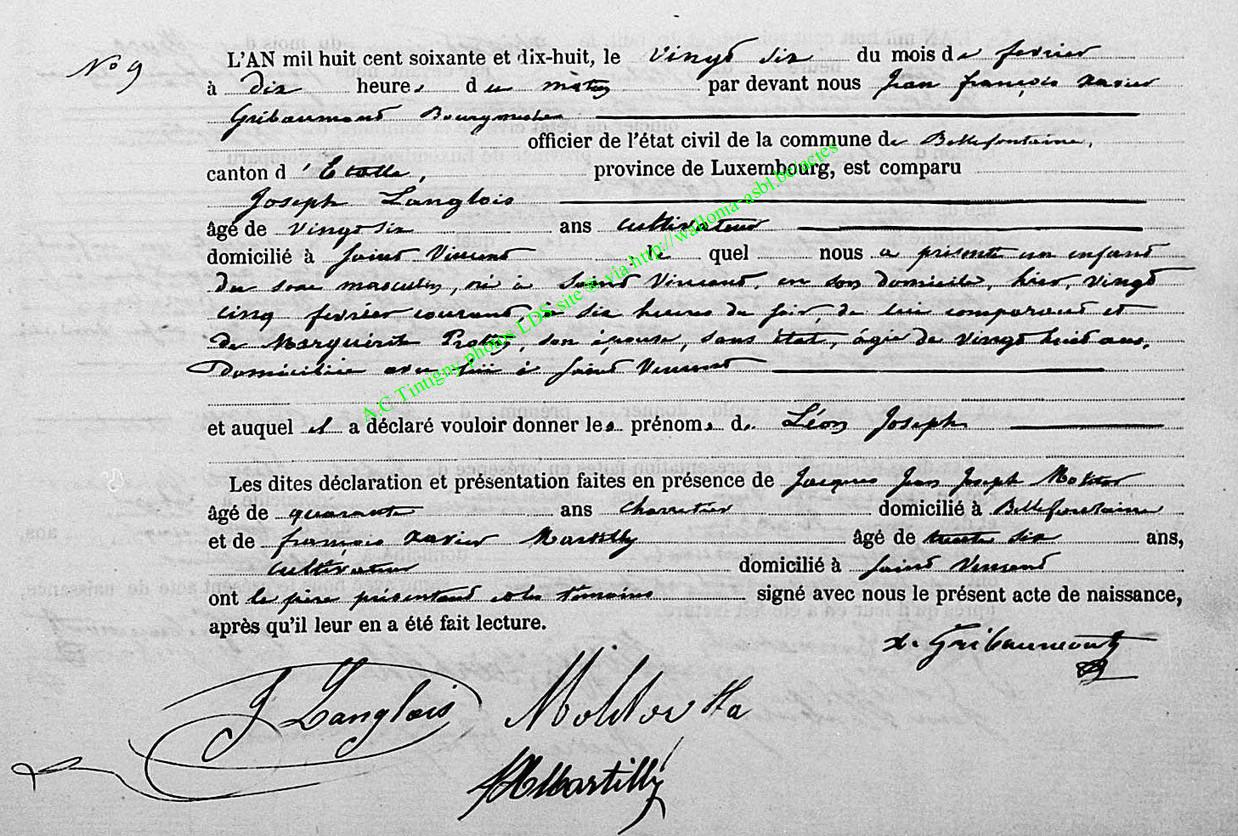 N° 9
L'AN mil huit cent soixante et dix-huit, le vingt six du mois de fevrier
à dix heures du matin par devant nous Jean françois xavier
Gribaumont Bourgmestre
officier de l'état civil de la commune de Bellefontaine,
canton d'Etalle, province de Luxembourg, est comparu
Joseph Langlois
âgé de vingt six ans cultivateur
domicilié à Saint Vincent le quel nous a présenté un enfant
du sexe masculin, né à Saint Vincent, en son domicile, hier, vingt
cinq fevrier courant, à six heures du soir, de lui comparant et
de Marguerite, son épouse, sans état, agée de vingt huit ans,
Domiciliée avec lui à Saint Vincent
et auquel il a déclaré vouloir donner les prénoms de Léon Joseph
Les dites déclaration et présentation faites en présence de Jacques Jean Joseph Molitor
âgé de quarante ans charretier domicilié à Bellefontaine
et de françois xavier Martilly âgé de trente six ans,
cultivateur domicilié à Saint Vincent
ont le père présentant et les témoins signé avec nous le présent acte de naissance,
après qu'il leur en a été fait lecture.
x. Gribaumont
J Langlois Molitor
Martilly
A.C Tintigny photos LDS, site @ via http://walloma-asbl.be/actes